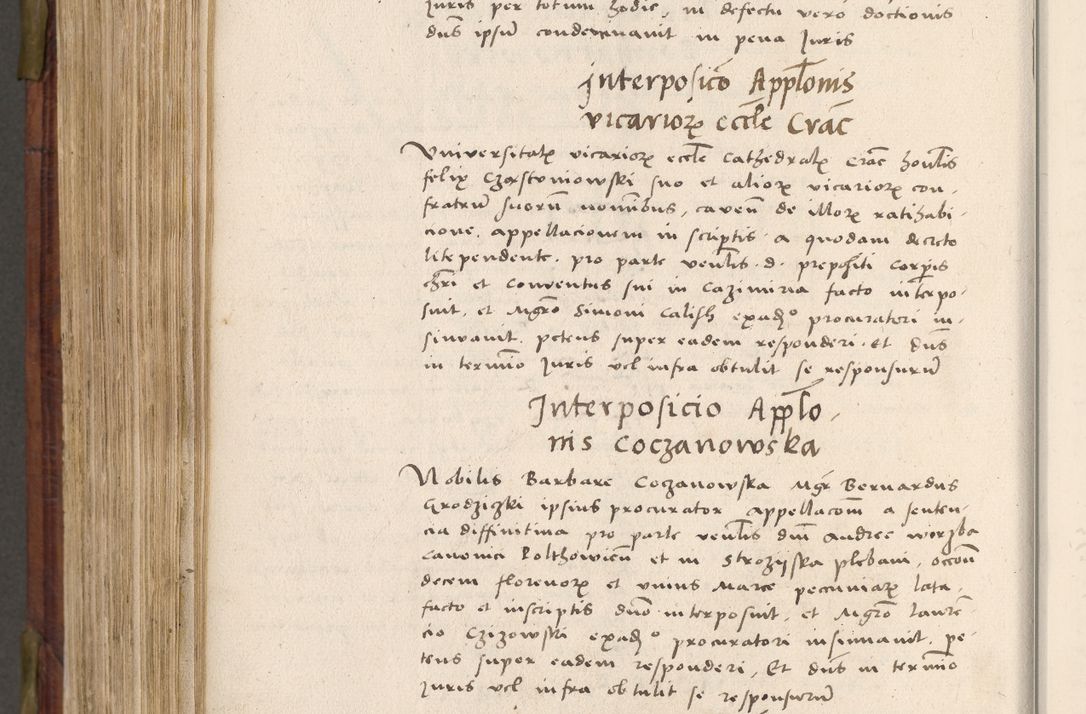 Juris per totum hodie, in defectu vero doctionis
dns ipsum condemnavit in pena Juris
Interposico Applonis
vicariorꝝ eccle Crac
Universitatꝝ vicariorꝝ eccle Cathedralꝝ Crac honlis
felix Czastoniowski suo et aliorꝝ vicariorꝝ con-
fratrum suorum nominibus, caven de illorꝝ ratihabi-
cione, appellacionem in scriptis a quodam decreto
lite pendente, pro parte venlis d. prepositi Corpis
Chri et Conventus sui in Cazimiria facto interpo-
suit, et Mgro Simoni Calish exado procuratori in-
sinuavit, petens super eadem responderi. Et dns
in termio Juris vel infra obtulit se responsurum
Interposicio Applo-
nis Coczanowska
Nobilis Barbare Coczanowska Mgr Bernardus
Grodziczki ipsius procurator appellacom a senten-
cia diffinitiva pro parte venlis dni Andree wirzba
Canonici Polthowien et in Strozyska plebani, occon
decem florenorꝝ et unius Marce pecuniarꝝ lata,
facto et inscriptis duo interposuit, et Mgro lauren
cio Czizowski exado procuratori insinuavit, pe-
tens super eadem responderi, Et dns in termio
Juris vel infra obtulit se responsurum